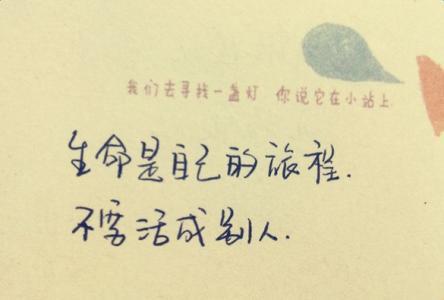 我们去寻找一盏灯 你说它在小站上
生命是自己的旅程.
不要活成别人.